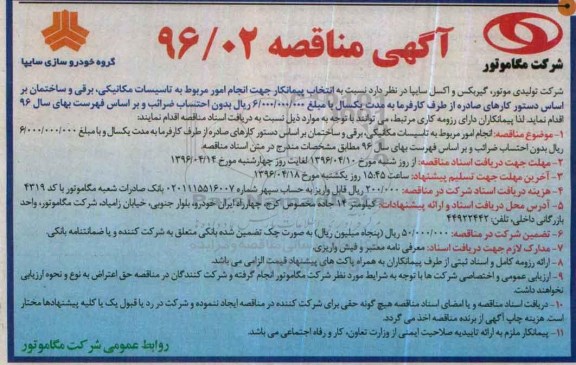 آگهی مناقصه ۹۶/۰۲
شرکت مگاموتور
گروه خودروسازی سایپا
شرکت تولیدی موتور، گیربکس و اکسل سایپا در نظر دارد نسبت به انتخاب پیمانکار جهت انجام امور مربوط به تاسیسات مکانیکی، برقی و ساختمان بر
اساس دستور کارهای صادره از طرف کارفرما به مدت یکسال با مبلغ ۶/۰۰۰/۰۰۰/۰۰۰ ریال بدون احتساب ضرائب و بر اساس فهرست بهای سال ۹۶
اقدام نمایند، لذا پیمانکاران دارای رزومه کاری مرتبط، می توانند با توجه به موارد ذیل نسبت به دریافت اسناد مناقصه اقدام نمایند:
۱- موضوع مناقصه: انجام امور مربوط به تاسیسات مکانیکی، برقی و ساختمان بر اساس دستور کارهای صادره از طرف کارفرما به مدت یکسال و با مبلغ ۶/۰۰۰/۰۰۰/۰۰۰
ریال بدون احتساب ضرائب و بر اساس فهرست بهای سال ۹۶ مطابق مشخصات مندرج در متن اسناد مناقصه.
۲- مهلت جهت دریافت اسناد مناقصه: از روز شنبه مورخ ۱۳۹۶/۰۴/۱۰ لغایت روز چهارشنبه مورخ ۱۳۹۶/۰۴/۱۴
۳- آخرین مهلت جهت تسلیم پیشنهاد: ساعت ۱۵:۴۵ روز یکشنبه مورخ ۱۳۹۶/۰۴/۱۸
۴- هزینه دریافت اسناد شرکت در مناقصه: ۲۰۰/۰۰۰ ریال قابل واریز به حساب سپهر شماره ۰۲۰۱۱۱۵۵۱۶۰۰۷ بانک صادرات شعبه مگاموتور با کد ۴۳۱۹
۵- آدرس محل دریافت اسناد و ارائه پیشنهادات: کیلومتر ۱۴ جاده مخصوص کرج، چهارراه ایران خودرو، بلوار جنوبی، خیابان زامیاد، شرکت مگاموتور، واحد
بازرگانی داخلی، تلفن: ۴۴۹۲۲۴۴۲
۶- تضمین شرکت در مناقصه: ۵۰/۰۰۰/۰۰۰ ریال (پنجاه میلیون ریال) به صورت چک تضمین شده بانکی متعلق به شرکت کننده و یا ضمانتنامه بانکی.
۷- مدارک لازم جهت دریافت اسناد: معرفی نامه معتبر و فیش واریزی.
۸- ارائه رزومه کامل و اسناد ثبتی از طرف پیمانکاران به همراه پاکت های پیشنهاد قیمت الزامی می باشد.
۹- ارزیابی عمومی و اختصاصی شرکت ها با توجه به شرایط مورد نظر شرکت مگاموتور انجام گرفته و شرکت کنندگان در مناقصه حق اعتراض به نوع و نحوه ارزیابی
نخواهند داشت.
۱۰- دریافت اسناد مناقصه و یا امضای اسناد مناقصه هیچ گونه حقی برای شرکت کننده در مناقصه ایجاد ننموده و شرکت در رد یا قبول یک یا کلیه پیشنهادها مختار
است. هزینه چاپ آگهی از برنده مناقصه اخذ می گردد.
۱۱- پیمانکار ملزم به ارائه تاییدیه صلاحیت ایمنی از وزارت تعاون، کار و رفاه اجتماعی می باشد.
روابط عمومی شرکت مگاموتور